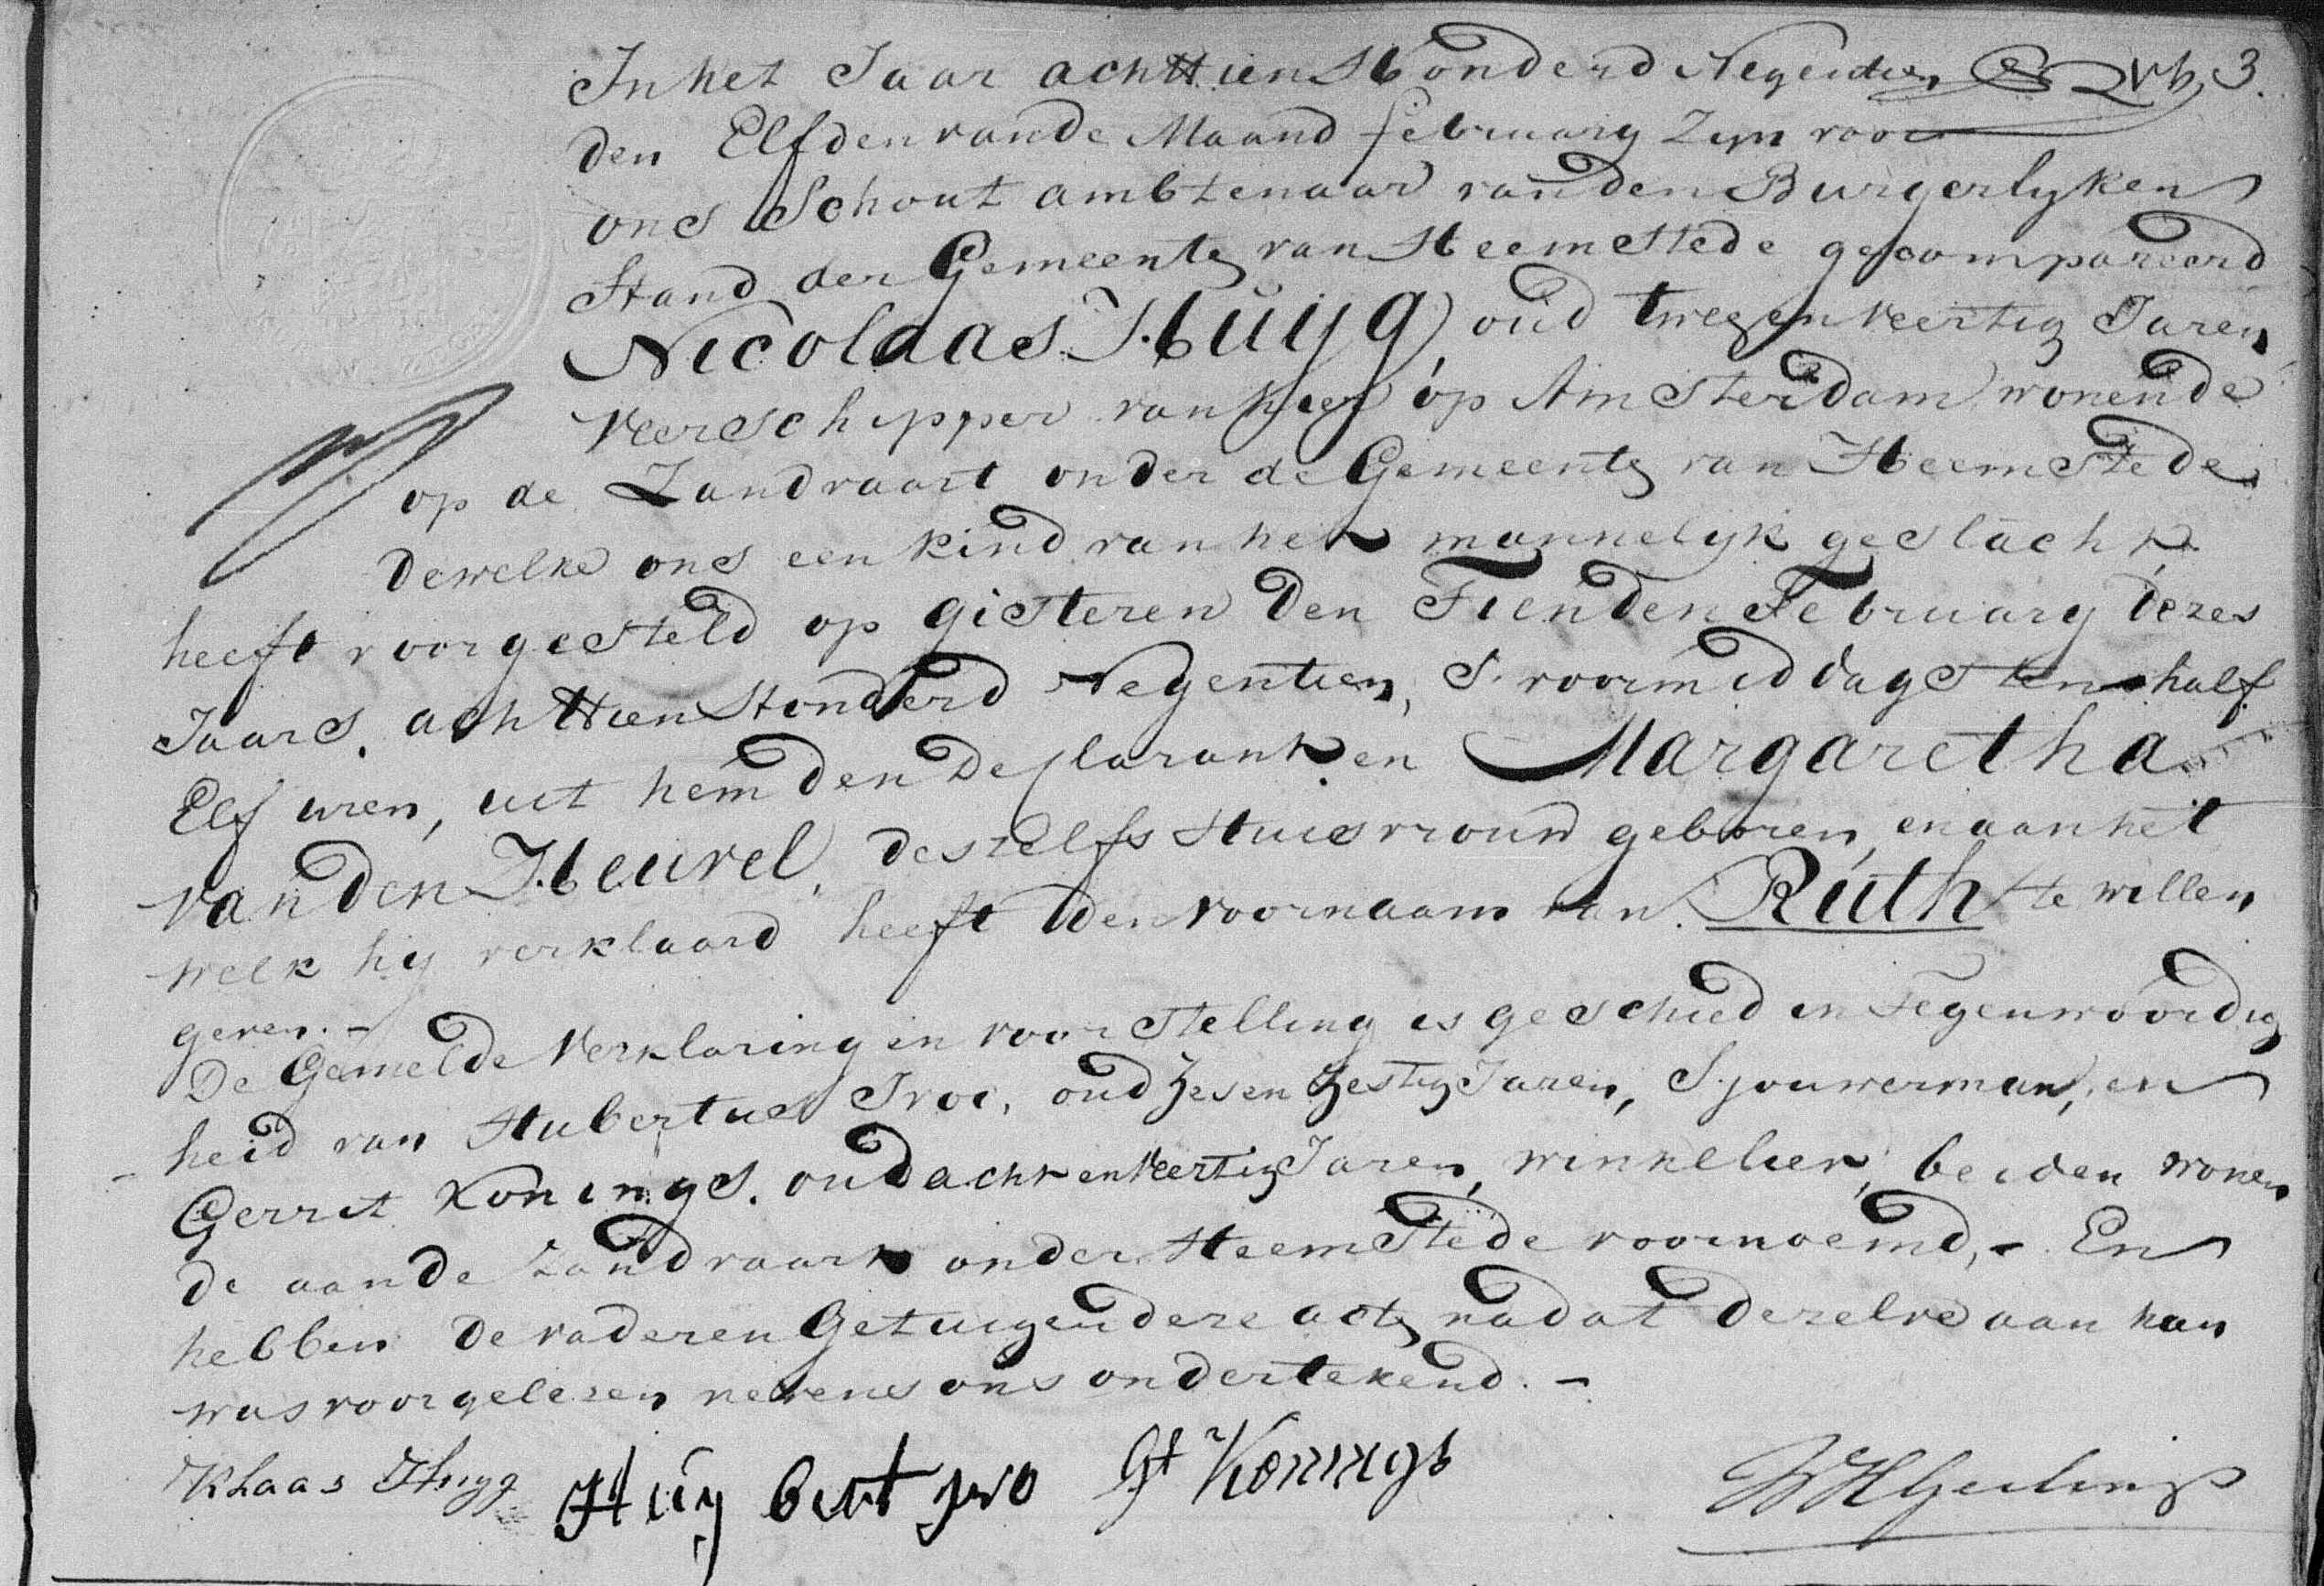 In het Jaar achttien Honderd Negentien
3.
den Elfden van de Maand february Zyn voor
ons Schout ambtenaar van den Burgerlyken
Stand der Gemeente van Heemstede gecompareerd
Nicolaas Huijg, oud twee en veertig Jaren,
Veerschipper van hier op Amsterdam, wonende
op de Zandvaart onder de Gemeente van Heemstede
dewelke ons een kind van het mannelyk geslacht
heeft voorgesteld op gisteren den Tienden February dezes
Jaars achttien Honderd Negentien, S. voormiddags ten half
Elf uren, uit hem den Declarant en Margaretha
van den Heuvel, deszelfs Huisvrouw geboren, en aan het
welk hy verklaard heeft den voornaam van Ruth te willen
geven. -
De Gemelde Verklaring en voorstelling is geschied in Tegenwoordig
heid van Hubertus Ivoo, oud Zes en Zestig Jaren, Sjouwerman, en
Gerrit Konings, oud acht en veertig Jaren, winkelier, beiden wonen
de aan de Zandvaart onder Heemstede voornoemd, - En
hebben de vader en Getuigen deze acte nadat dezelve aan hun
was voorgelezen nevens ons ondertekend. -
Klaas Huyg Huybert ivo Gt Konings